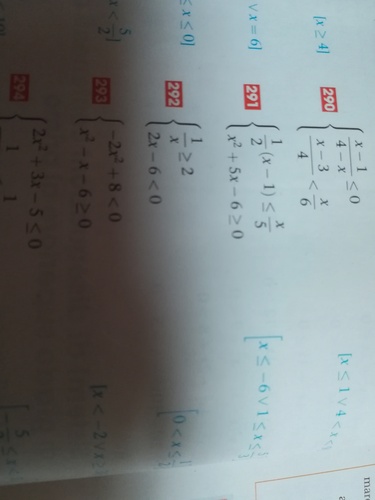 [x ≥ 4]
290 { (x − 1)/(4 − x) ≤ 0
(x − 3)/4 < x/6
[x ≤ 1 ∨ 4 < x
∨ x = 6]
291 { 1/2 (x − 1) ≤ x/5
x² + 5x − 6 ≥ 0
[x ≤ −6 ∨ 1 ≤ x ≤
≤ x ≤ 0]
292 { 1/x ≥ 2
2x − 6 < 0
[0 < x ≤ 1/2
x < 5/2]
293 { −2x² + 8 < 0
x² − x − 6 ≥ 0
[x < −2 ∨ x ≥
294 { 2x² + 3x − 5 ≤ 0